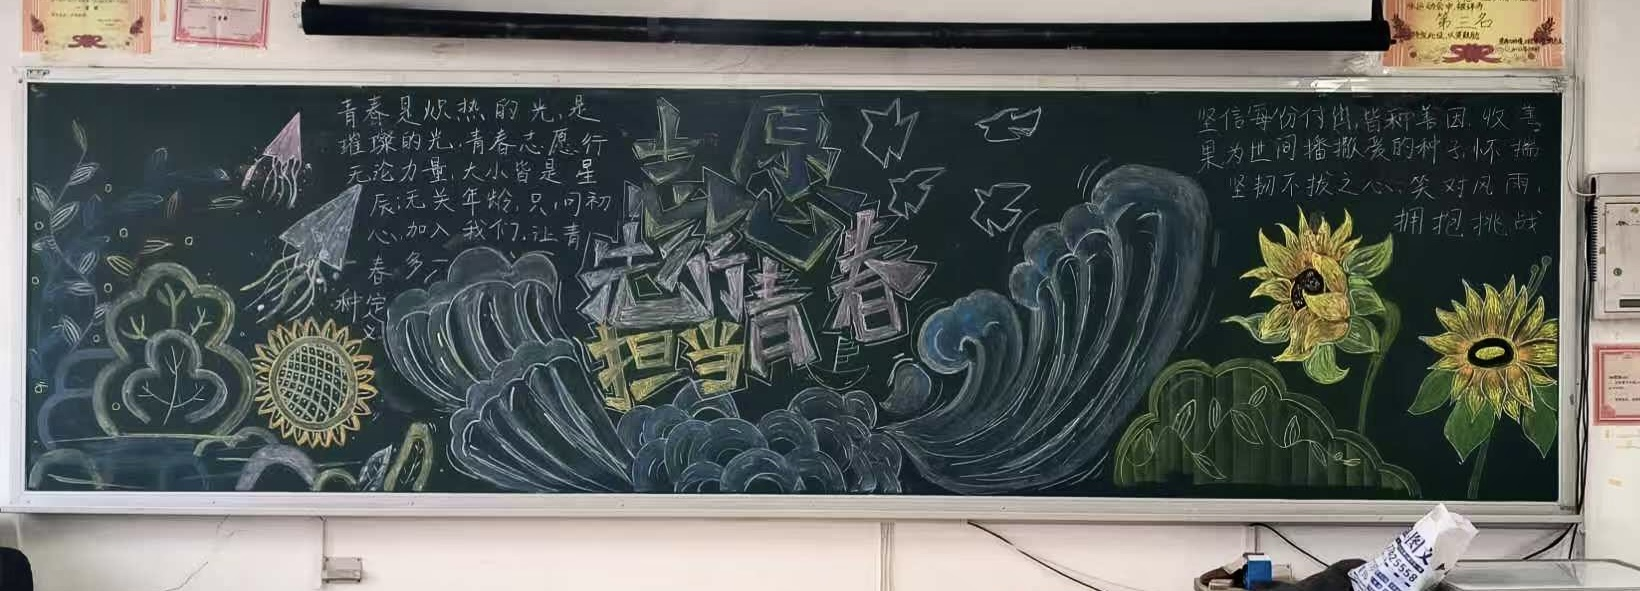 第二名
青春是炽热的光,是
璀璨的光,青春志愿行
无论力量,大小皆是星
辰;无关年龄,只问初
心,加入我们,让青
春多一
种定
义
志愿
先行
青春
担当
坚信每份付出,皆种善因,收善
果,为世间播撒爱的种子,怀揣
坚韧不拔之心,笑对风雨,
拥抱挑战
图文
25558